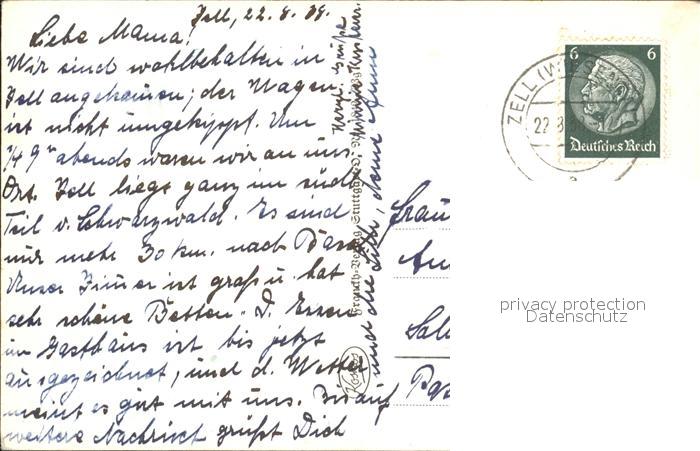 Zell, 22.8.39.
Liebe Mama!
Wir sind wohlbehalten in
Zell angekommen; der Wagen
ist nicht umgekippt. Um
1/4 9h abends waren wir an uns.
Ort. Zell liegt ganz im südl.
Teil v. Schwarzwald. Es sind
nur mehr 30 km. nach Basel
Unser Zimmer ist groß u. hat
sehr schöne Betten. D. Essen
im Gasthaus ist bis jetzt
ausgezeichnet, und d. Wetter
meint es gut mit uns. Bis auf
weitere Nachricht grüßt Dich
und die Lilli, deine Anna
Herzl. Grüße
Franckh-Verlag Stuttgart
Kosmos
Frau
6 6
Deutsches Reich
ZELL (WIESENTAL)
22.8.
a
privacy protection
Datenschutz